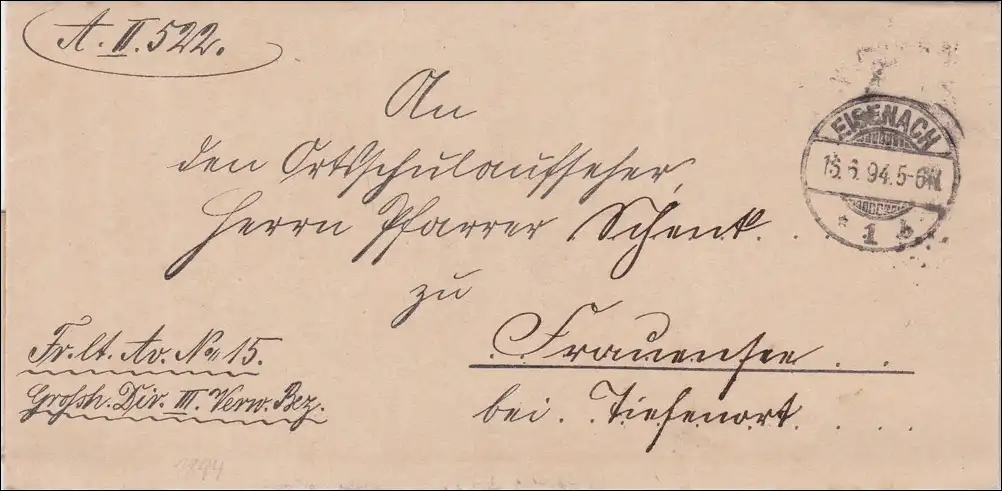 A. II. 522.
An
den Ortsschulaufseher,
Herrn Pfarrer Schenk.
zu
Frauensee
bei Tiefenort.
Fr. lt. Av. No 15.
Grossh. Dir. III. Verw. Bez.
EISENACH
15.6.94.5-6N.
* 1 b
1894